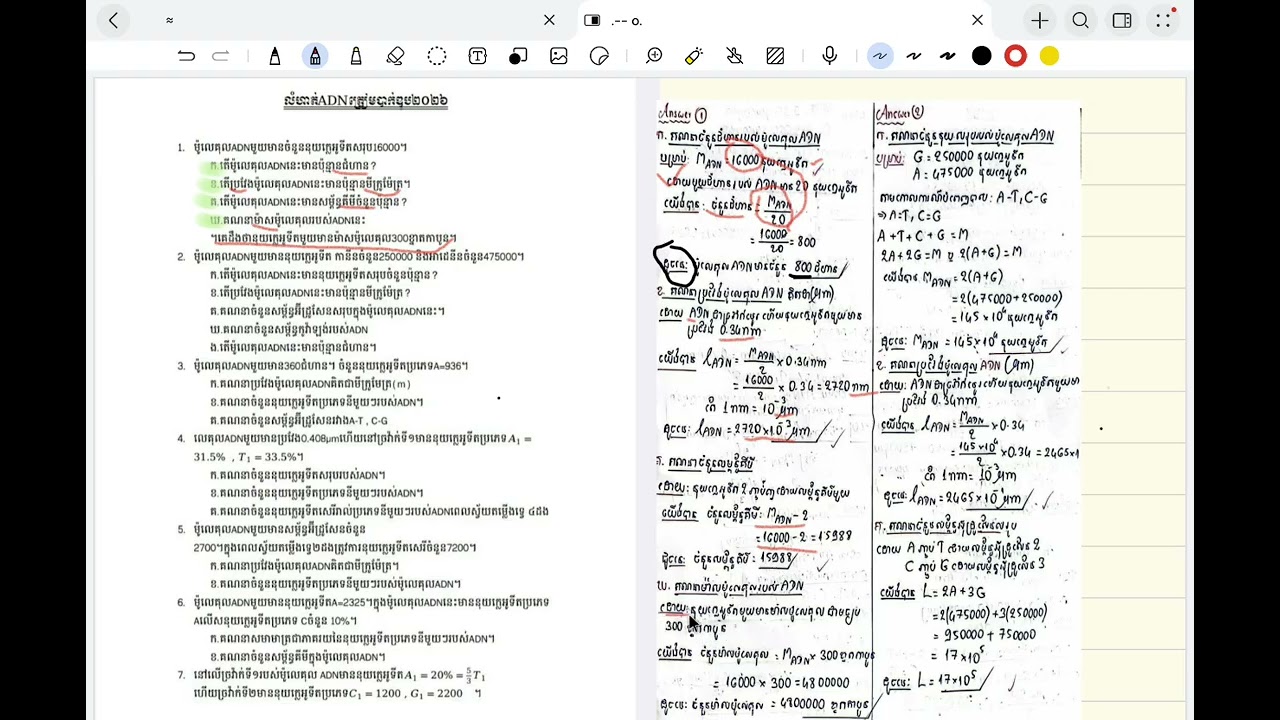 ≈
.-- o.
លំហាត់ADNត្រៀមបាក់ឌុប២០២៦
1. ម៉ូលេគុលADNមួយមានចំនួននុយក្លេអូទីតសរុប16000។
ក.តើម៉ូលេគុលADNនេះមានប៉ុន្មានជំហាន?
ខ.តើប្រវែងម៉ូលេគុលADNនេះមានប៉ុន្មានមីក្រូម៉ែត្រ។
គ.តើម៉ូលេគុលADNនេះមានសម្ព័ន្ធគីមីចំនួនប៉ុន្មាន?
ឃ.គណនាម៉ាសម៉ូលេគុលរបស់ADNនេះ
។គេដឹងថានុយក្លេអូទីតមួយមានម៉ាសម៉ូលេគុល300ខ្នាតកាបូន។
2. ម៉ូលេគុលADNមួយមាននុយក្លេអូទីត កានីនចំនួន250000 និងអាដេនីនចំនួន475000។
ក.តើម៉ូលេគុលADNនេះមាននុយក្លេអូទីតសរុបចំនួនប៉ុន្មាន?
ខ.តើប្រវែងម៉ូលេគុលADNនេះមានប៉ុន្មានមីក្រូម៉ែត្រ?
គ.គណនាចំនួនសម្ព័ន្ធអ៊ីដ្រូសែនសរុបក្នុងម៉ូលេគុលADNនេះ។
ឃ.គណនាចំនួនសម្ព័ន្ធកូវ៉ាឡង់របស់ADN
ង.តើម៉ូលេគុលADNនេះមានប៉ុន្មានជំហាន។
3. ម៉ូលេគុលADNមួយមាន360ជំហាន។ ចំនួននុយក្លេអូទីតប្រភេទA=936។
ក.គណនាប្រវែងម៉ូលេគុលADNគិតជាមីក្រូម៉ែត្រ(m)
ខ.គណនាចំនួននុយក្លេអូទីតប្រភេទនីមួយៗរបស់ADN។
គ.គណនាចំនួនសម្ព័ន្ធអ៊ីដ្រូសែនរវាងA-T , C-G
4. លេគុលADNមួយមានប្រវែង0.408µmហើយនៅច្រវ៉ាក់ទី១មាននុយក្លេអូទីតប្រភេទ A₁ =
31.5% , T₁ = 33.5%។
ក.គណនាចំនួននុយក្លេអូទីតសរុបរបស់ADN។
ខ.គណនាចំនួននុយក្លេអូទីតប្រភេទនីមួយៗរបស់ADN។
គ.គណនាចំនួននុយក្លេអូទីតសេរីរាល់ប្រភេទនីមួយៗរបស់ADNពេលស្វ័យតម្លើងទ្វេ ៤ដង
5. ម៉ូលេគុលADNមួយមានសម្ព័ន្ធអ៊ីដ្រូសែនចំនួន
2700។ក្នុងពេលស្វ័យតម្លើងទ្វេ២ដងត្រូវការនុយក្លេអូទីតសេរីចំនួន7200។
ក.គណនាប្រវែងម៉ូលេគុលADNគិតជាមីក្រូម៉ែត្រ។
ខ.គណនាចំនួននុយក្លេអូទីតប្រភេទនីមួយៗរបស់ម៉ូលេគុលADN។
6. ម៉ូលេគុលADNមួយមាននុយក្លេអូទីតA=2325។ក្នុងម៉ូលេគុលADNនេះមាននុយក្លេអូទីតប្រភេទ
Aលើសនុយក្លេអូទីតប្រភេទ Cចំនួន 10%។
ក.គណនាសមាមាត្រជាភាគរយនៃនុយក្លេអូទីតប្រភេទនីមួយៗរបស់ADN។
ខ.គណនាចំនួនសម្ព័ន្ធគីមីក្នុងម៉ូលេគុលADN។
7. នៅលើច្រវ៉ាក់ទី១របស់ម៉ូលេគុល ADNមាននុយក្លេអូទីតA₁ = 20% = 5/3 T₁
ហើយច្រវ៉ាក់ទី២មាននុយក្លេអូទីតប្រភេទC₁ = 1200 , G₁ = 2200 ។
Answer ①
ក. គណនាជំហានរបស់ម៉ូលេគុល ADN
បម្រាប់: M ADN = 16000 នុយក្លេអូទីត
ដោយមួយជំហានរបស់ ADN មាន 20 នុយក្លេអូទីត
យើងបាន: ចំនួនជំហាន = M ADN / 20
= 16000 / 20 = 800
ដូចនេះ: ម៉ូលេគុល ADN មានចំនួន 800 ជំហាន
ខ. គណនាប្រវែងម៉ូលេគុល ADN គិតជា(µm)
ដោយ ADN ជាច្រវ៉ាក់ឆ្វេរ ហើយនុយក្លេអូទីតមួយមាន
ប្រវែង 0.34nm
យើងបាន l ADN = M ADN / 2 × 0.34nm
= 16000 / 2 × 0.34 = 2720 nm
តែ 1nm = 10⁻³ µm
ដូចនេះ: l ADN = 2720 × 10⁻³ µm
គ. គណនាចំនួនសម្ព័ន្ធគីមី
ដោយ: នុយក្លេអូទីត 2 ភ្ជាប់គ្នាដោយសម្ព័ន្ធគីមីមួយ
យើងបាន ចំនួនសម្ព័ន្ធគីមី: M ADN - 2
= 16000 - 2 = 15988
ដូចនេះ: ចំនួនសម្ព័ន្ធគីមី: 15988
ឃ. គណនាម៉ាសម៉ូលេគុលរបស់ ADN
ដោយ: នុយក្លេអូទីតមួយមានម៉ាសម៉ូលេគុល ជាមធ្យម
300 ខ្នាតកាបូន
យើងបាន ចំនួនម៉ាសម៉ូលេគុល = M ADN × 300 ខ្នាតកាបូន
= 16000 × 300 = 4800000
ដូចនេះ: ចំនួនម៉ាសម៉ូលេគុល = 4800000 ខ្នាតកាបូន
Answer ②
ក. គណនាចំនួននុយ សរុបរបស់ម៉ូលេគុល ADN
បម្រាប់: G = 250000 នុយក្លេអូទីត
A = 475000 នុយក្លេអូទីត
តាមគោលការណ៍បំពេញគ្នា: A-T, C-G
⇒ A=T, C=G
A + T + C + G = M
2A + 2G = M ឬ 2(A+G) = M
យើងបាន M ADN = 2(A+G)
= 2(475000 + 250000)
= 145 × 10⁴ នុយក្លេអូទីត
ដូចនេះ: M ADN = 145 × 10⁴ នុយក្លេអូទីត
ខ. គណនាប្រវែងម៉ូលេគុល ADN (µm)
ដោយ: ADN ជាច្រវ៉ាក់ឆ្វេរ ហើយនុយក្លេអូទីតមួយមាន
ប្រវែង 0.34nm
យើងបាន l ADN = M ADN / 2 × 0.34
= 145 × 10⁴ / 2 × 0.34 = 2465 × 1
តែ 1nm = 10⁻³ µm
ដូចនេះ: l ADN = 2465 × 10⁻¹ µm
គ. គណនាចំនួនសម្ព័ន្ធអ៊ីដ្រូសែនសរុប
ដោយ A ភ្ជាប់ T ដោយសម្ព័ន្ធអ៊ីដ្រូសែន 2
C ភ្ជាប់ G ដោយសម្ព័ន្ធអ៊ីដ្រូសែន 3
យើងបាន L = 2A + 3G
= 2(475000) + 3(250000)
= 950000 + 750000
= 17 × 10⁵
ដូចនេះ: L = 17 × 10⁵